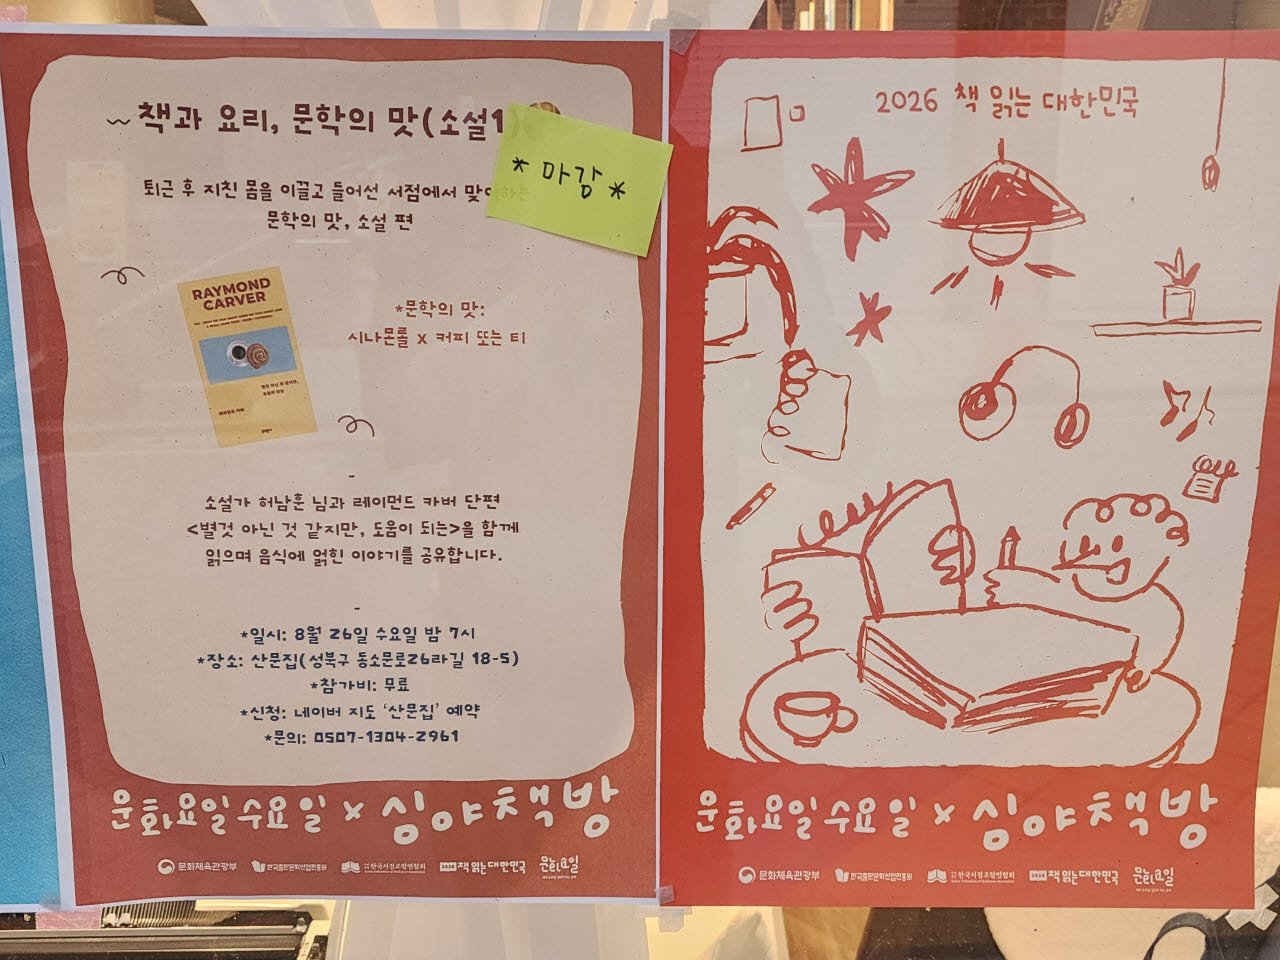 책과 요리, 문학의 맛(소설1)
*마감*
퇴근 후 지친 몸을 이끌고 들어선 서점에서
문학의 맛, 소설 편
RAYMOND
CARVER
*문학의 맛:
시나몬롤 X 커피 또는 티
레이먼드 카버
소설가 허남훈 님과 레이먼드 카버 단편
<별것 아닌 것 같지만, 도움이 되는>을 함께
읽으며 음식에 얽힌 이야기를 공유합니다.
*일시: 8월 26일 수요일 밤 7시
*장소: 산문집(성북구 동소문로26라길 18-5)
*참가비: 무료
*신청: 네이버 지도 ‘산문집’ 예약
*문의: 0507-1304-2961
문화요일수요일 x 심야책방
문화체육관광부 한국출판문화산업진흥원 한국서점조합연합회 2026 책 읽는 대한민국
2026 책 읽는 대한민국
문화요일수요일 x 심야책방
문화체육관광부 한국출판문화산업진흥원 한국서점조합연합회 2026 책 읽는 대한민국